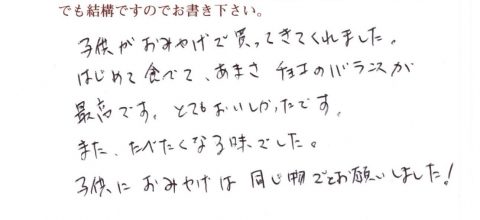 でも結構ですのでお書き下さい。
子供がおみやげで買ってきてくれました。
はじめて食べて、あまさ チョコのバランスが
最高です。とてもおいしかったです。
また、たべたくなる味でした。
子供に おみやげは 同じ物でとお願いしました!